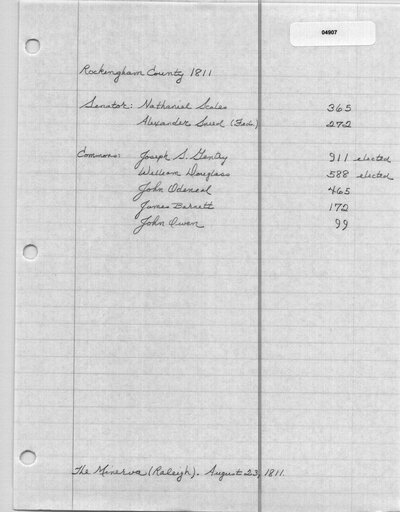 04907
Rockingham County 1811
Senator: Nathaniel Scales 365
Alexander Sneed (Fed.) 272
Commons: Joseph S. Gentry 911 elected
William Douglass 588 elected
John Odeneal 465
James Barnett 172
John Owen 99
The Minerva (Raleigh). August 23, 1811.